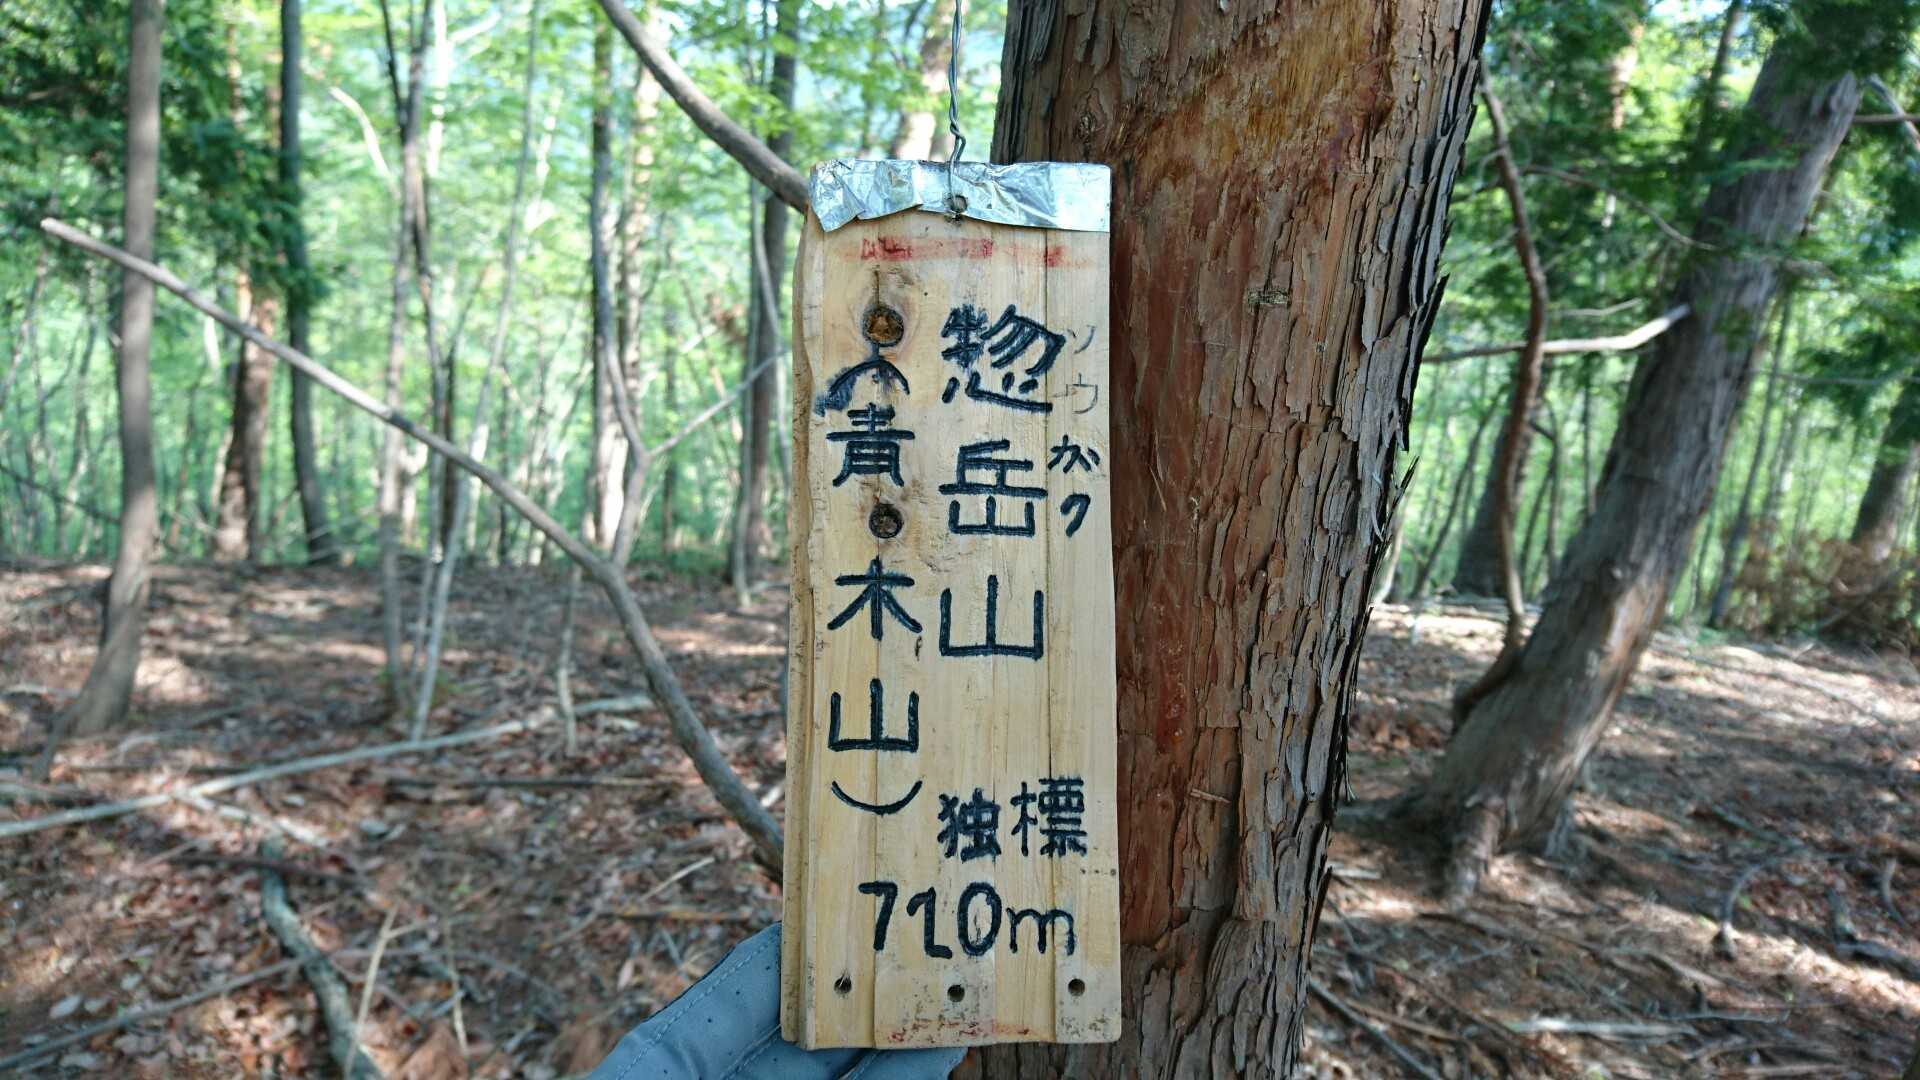 惣岳山
ソウガク
(青木山)
独標
710m